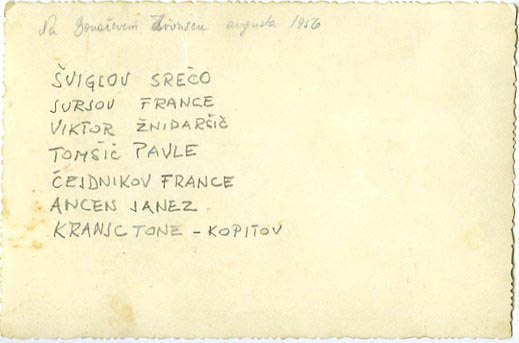 Na Bonačevem dvorišču avgusta 1956
ŠVIGLOV SREČO
SURSOV FRANCE
VIKTOR ŽNIDARŠIČ
TOMŠIČ PAVLE
ČEJDNIKOV FRANCE
ANCEN JANEZ
KRANJC TONE - KOPITOV